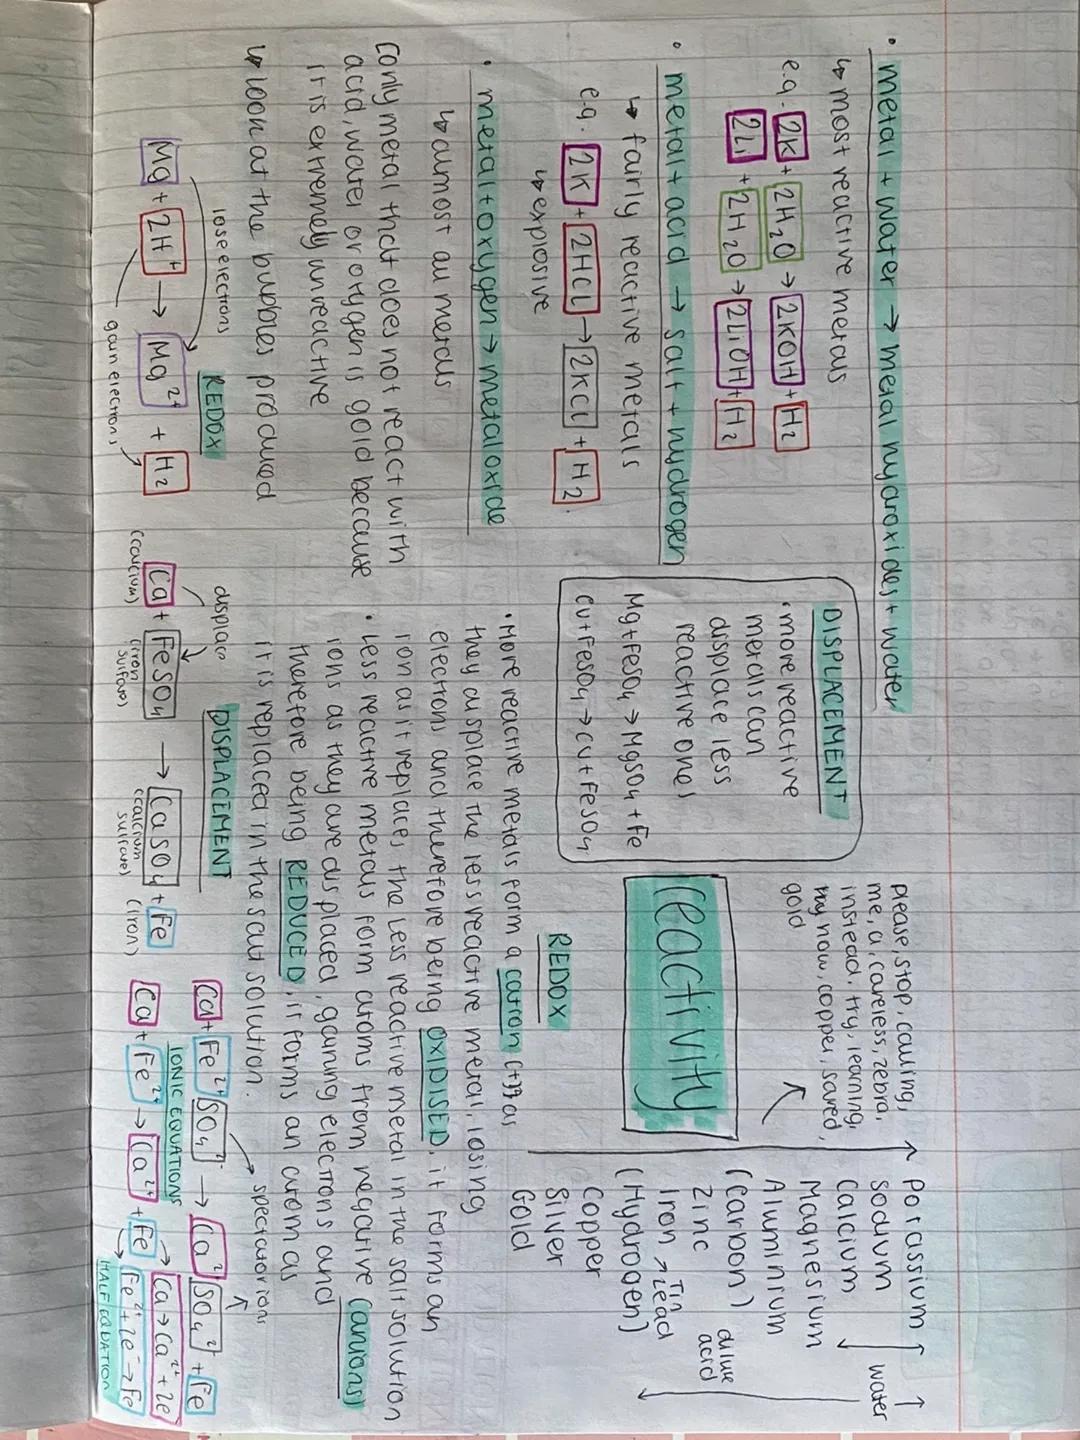 • metal + water → metal hydroxides + water
↳ most reactive metals
e.g. 2K + 2H₂O → 2KOH + H₂
2Li + 2H₂O → 2LiOH + H₂
• metal + acid → salt + hydrogen
↳ fairly reactive metals
e.g. 2K + 2HCl → 2KCl + H₂.
↳ explosive
• metal + oxygen → metal oxide
↳ almost all metals
(only metal that does not react with
acid, water or oxygen is gold because
it is extremely unreactive
↳ look at the bubbles produced
lose electrons
REDOX
Mg + 2H⁺ → Mg²⁺ + H₂
gain electrons
DISPLACEMENT
• more reactive
metals can
displace less
reactive ones
Mg + FeSO₄ → MgSO₄ + Fe
Cu + FeSO₄ → Cu + FeSO₄
please, stop, calling,
me, a, careless, zebra,
instead, try, learning,
how, copper, saved,
gold
reactivity
Potassium
Sodium
Calcium
Magnesium
Aluminium
(Carbon)
Zinc
Iron → Tin Lead
(Hydrogen)
Copper
Silver
Gold
water
dilute
acid
REDOX
• More reactive metals form a cation (+) as
they displace the less reactive metal, losing
electrons and therefore being OXIDISED, it forms an
ion as it replaces the less reactive metal in the salt solution
• Less reactive metals form atoms from negative (anions)
ions as they are displaced, gaining electrons and
therefore being REDUCED, it forms an atom as
it is replaced in the salt solution.
displace
DISPLACEMENT
Ca + FeSO₄ → CaSO₄ + Fe
(calcium) (iron sulfate) (calcium sulfate) (iron)
spectator ions
Ca + Fe²⁺ SO₄²⁻ → Ca² SO₄² + Fe
IONIC EQUATIONS
Ca + Fe²⁺ → Ca²⁺ + Fe
Ca → Ca²⁺ + 2e
Fe²⁺ + 2e⁻ → Fe
HALF EQUATION